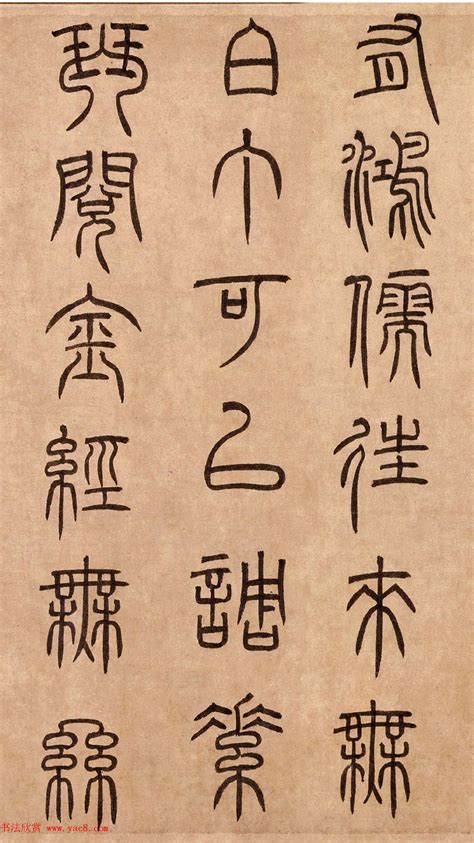 有鴻儒往來無
白丁可以調素
琴閱金經無絲
书法欣赏 www.yac8.com